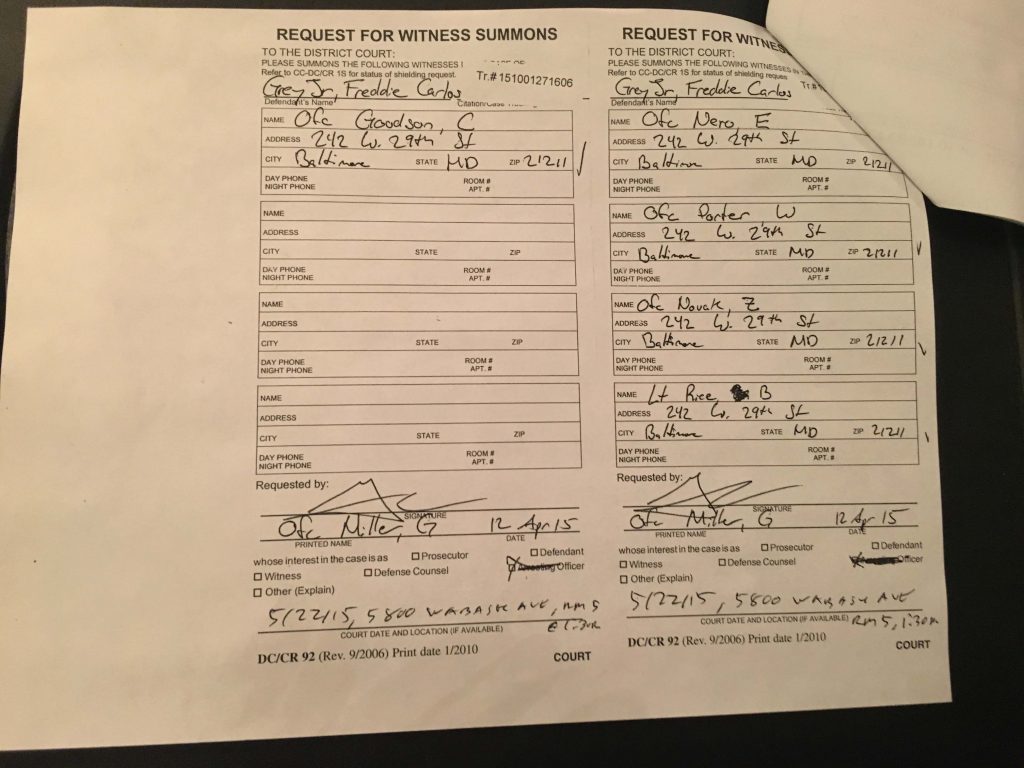 REQUEST FOR WITNESS SUMMONS
TO THE DISTRICT COURT:
PLEASE SUMMONS THE FOLLOWING WITNESSES
Refer to CC-DC/CR 1S for status of shielding request.
Tr.#151001271606
Grey Jr, Freddie Carlos
Defendant's Name
NAME Ofc Goodson, C
ADDRESS 242 W. 29th St
CITY Baltimore STATE MD ZIP 21211
DAY PHONE ROOM #
NIGHT PHONE APT. #
NAME
ADDRESS
CITY STATE ZIP
DAY PHONE ROOM #
NIGHT PHONE APT. #
NAME
ADDRESS
CITY STATE ZIP
DAY PHONE ROOM #
NIGHT PHONE APT. #
NAME
ADDRESS
CITY STATE ZIP
DAY PHONE ROOM #
NIGHT PHONE APT. #
Requested by:
SIGNATURE
Ofc Miller, G 12 Apr 15
PRINTED NAME DATE
whose interest in the case is as ☐ Prosecutor ☐ Defendant
☐ Witness ☐ Defense Counsel Officer
☐ Other (Explain)
5/22/15, 5800 WABASH AVE, RM 5
@ 1:30PM
COURT DATE AND LOCATION (IF AVAILABLE)
DC/CR 92 (Rev. 9/2006) Print date 1/2010
COURT
REQUEST FOR WITNESS
TO THE DISTRICT COURT:
PLEASE SUMMONS THE FOLLOWING WITNESSES IN
Refer to CC-DC/CR 1S for status of shielding reques
Tr.#
Grey Jr, Freddie Carlos
Defendant's Name
NAME Ofc Nero, E
ADDRESS 242 W. 29th St
CITY Baltimore STATE MD ZIP 21211
DAY PHONE ROOM #
NIGHT PHONE APT. #
NAME Ofc Porter, W
ADDRESS 242 W. 29th St
CITY Baltimore STATE MD ZIP 21211
DAY PHONE ROOM #
NIGHT PHONE APT. #
NAME Ofc Novak, Z
ADDRESS 242 W. 29th St
CITY Baltimore STATE MD ZIP 21211
DAY PHONE ROOM #
NIGHT PHONE APT. #
NAME Lt Rice, B
ADDRESS 242 W. 29th St
CITY Baltimore STATE MD ZIP 21211
DAY PHONE ROOM #
NIGHT PHONE APT. #
Requested by:
SIGNATURE
Ofc Miller, G 12 Apr 15
PRINTED NAME DATE
whose interest in the case is as ☐ Prosecutor ☐ Defendant
☐ Witness ☐ Defense Counsel Officer
☐ Other (Explain)
5/22/15, 5800 WABASH AVE
COURT DATE AND LOCATION (IF AVAILABLE) RM 5, 1:30PM
DC/CR 92 (Rev. 9/2006) Print date 1/2010
COURT